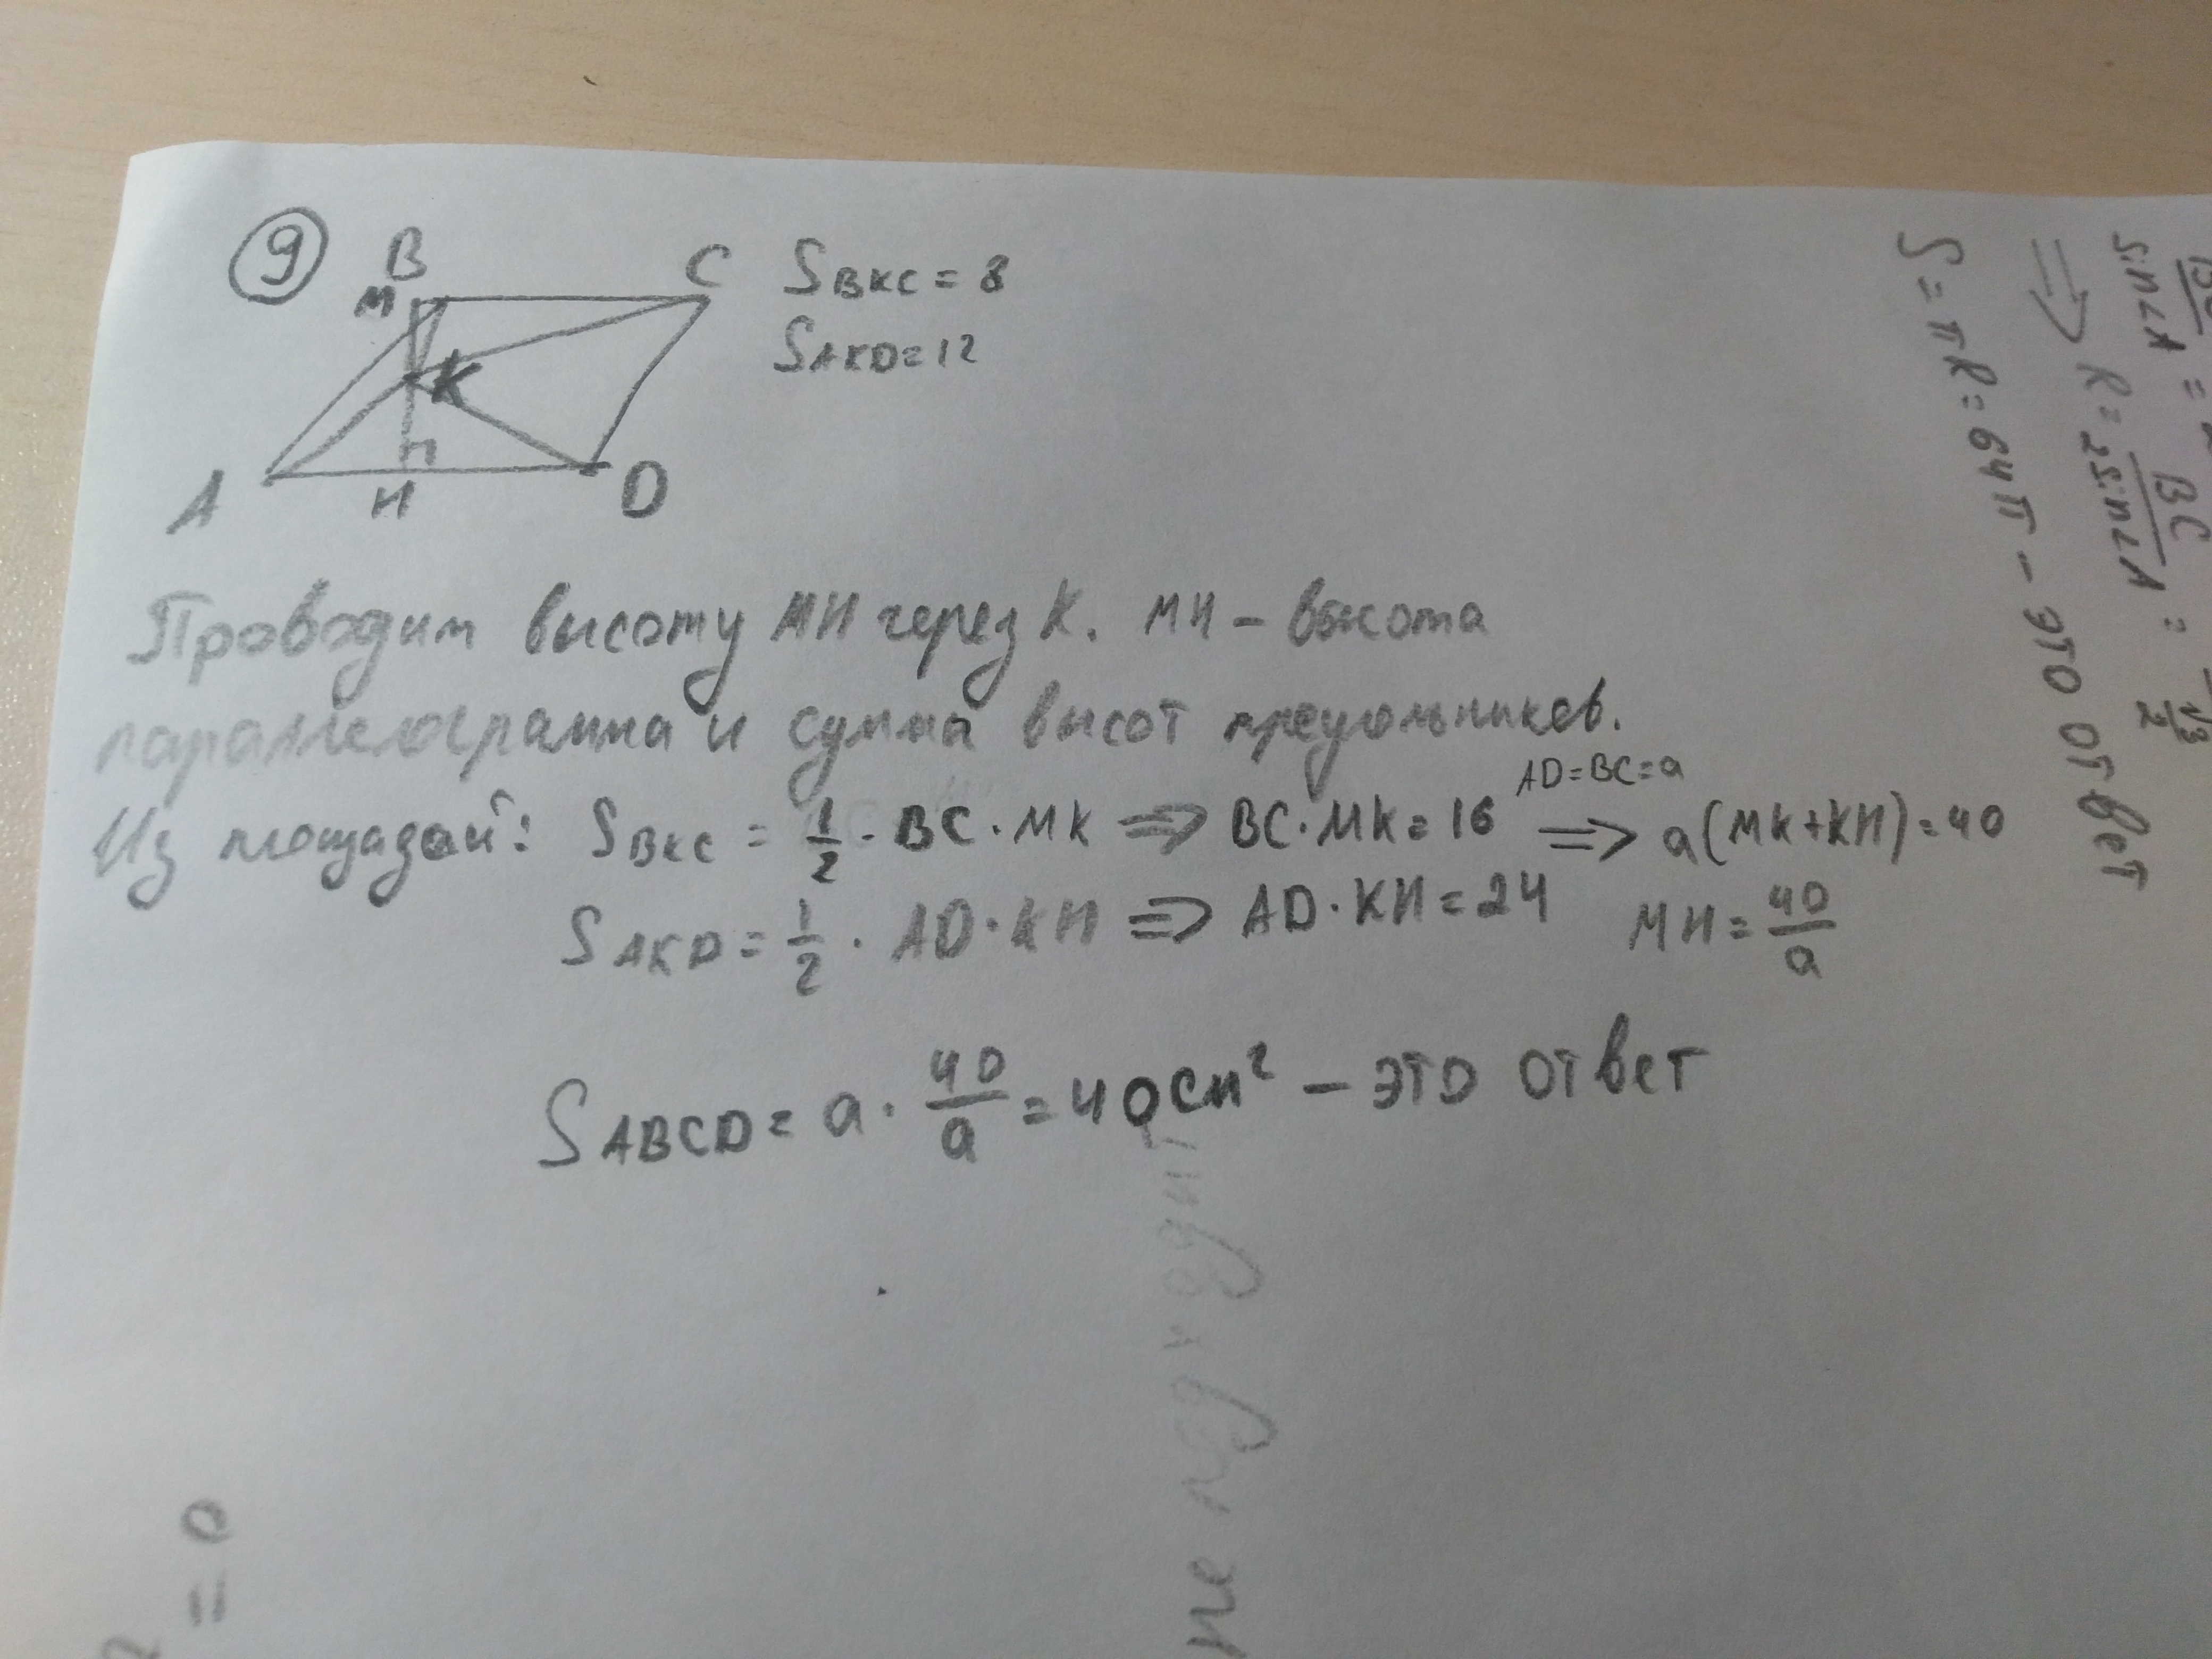 9
B
M
C
K
A
H
D
S BKC = 8
S AKD = 12
Проводим высоту MH через K. MH – высота
параллелограмма и сумма высот треугольников.
Из площадей: S BKC = 1/2 · BC · MK => BC · MK = 16 AD=BC=a => a(MK+KH)=40
S AKD = 1/2 · AD · KH => AD · KH = 24 MH = 40/a
S ABCD = a · 40/a = 40 см² – это ответ
sin∠A
=> R = BC / 2sin∠A =
S = πR = 64π – это ответ
не подходит
= 0